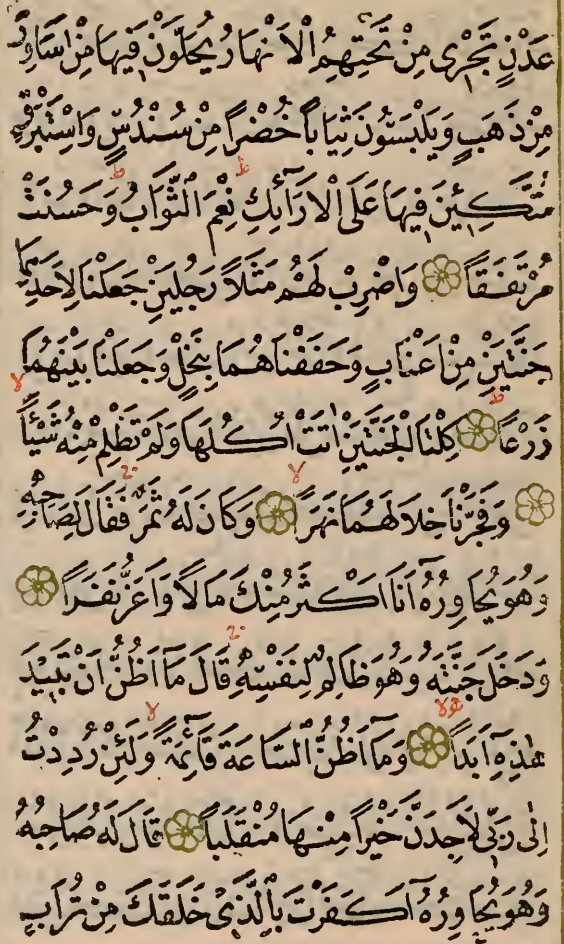 عَدْنٍ تَجْرٖى مِنْ تَحْتِهِمُ الْاَنْهَارُ يُحَلَّوْنَ فٖيهَا مِنْ اَسَاوِرَ
مِنْ ذَهَبٍ وَيَلْبَسُونَ ثِيَاباً خُضْراً مِنْ سُنْدُسٍ وَاِسْتَبْرَقٍ
مُتَّكِـٖٔينَ فٖيهَا عَلَى الْاَرَٓائِكِ نِعْمَ الثَّوَابُ وَحَسُنَتْ
مُرْتَفَقاً وَاضْرِبْ لَهُمْ مَثَلاً رَجُلَيْنِ جَعَلْنَا لِاَحَدِهِمَا
جَنَّتَيْنِ مِنْ اَعْنَابٍ وَحَفَفْنَاهُمَا بِنَخْلٍ وَجَعَلْنَا بَيْنَهُمَا
زَرْعاً كِلْتَا الْجَنَّتَيْنِ اٰتَتْ اُكُلَهَا وَلَمْ تَظْلِمْ مِنْهُ شَيْـٔاً
وَفَجَّرْنَا خِلَالَهُمَا نَهَراً وَكَانَ لَهُ ثَمَرٌ فَقَالَ لِصَاحِبِهٖ
وَهُوَ يُحَاوِرُهُٓ اَنَا اَكْثَرُ مِنْكَ مَالاً وَاَعَزُّ نَفَراً
وَدَخَلَ جَنَّتَهُ وَهُوَ ظَالِمٌ لِنَفْسِهٖ قَالَ مَٓا اَظُنُّ اَنْ تَبٖيدَ
هٰذِهٖٓ اَبَداً وَمَٓا اَظُنُّ السَّاعَةَ قَٓائِمَةً وَلَئِنْ رُدِدْتُ
اِلٰى رَبّٖى لَاَجِدَنَّ خَيْراً مِنْهَا مُنْقَلَباً قَالَ لَهُ صَاحِبُهُ
وَهُوَ يُحَاوِرُهُٓ اَكَفَرْتَ بِالَّذٖى خَلَقَكَ مِنْ تُرَابٍ